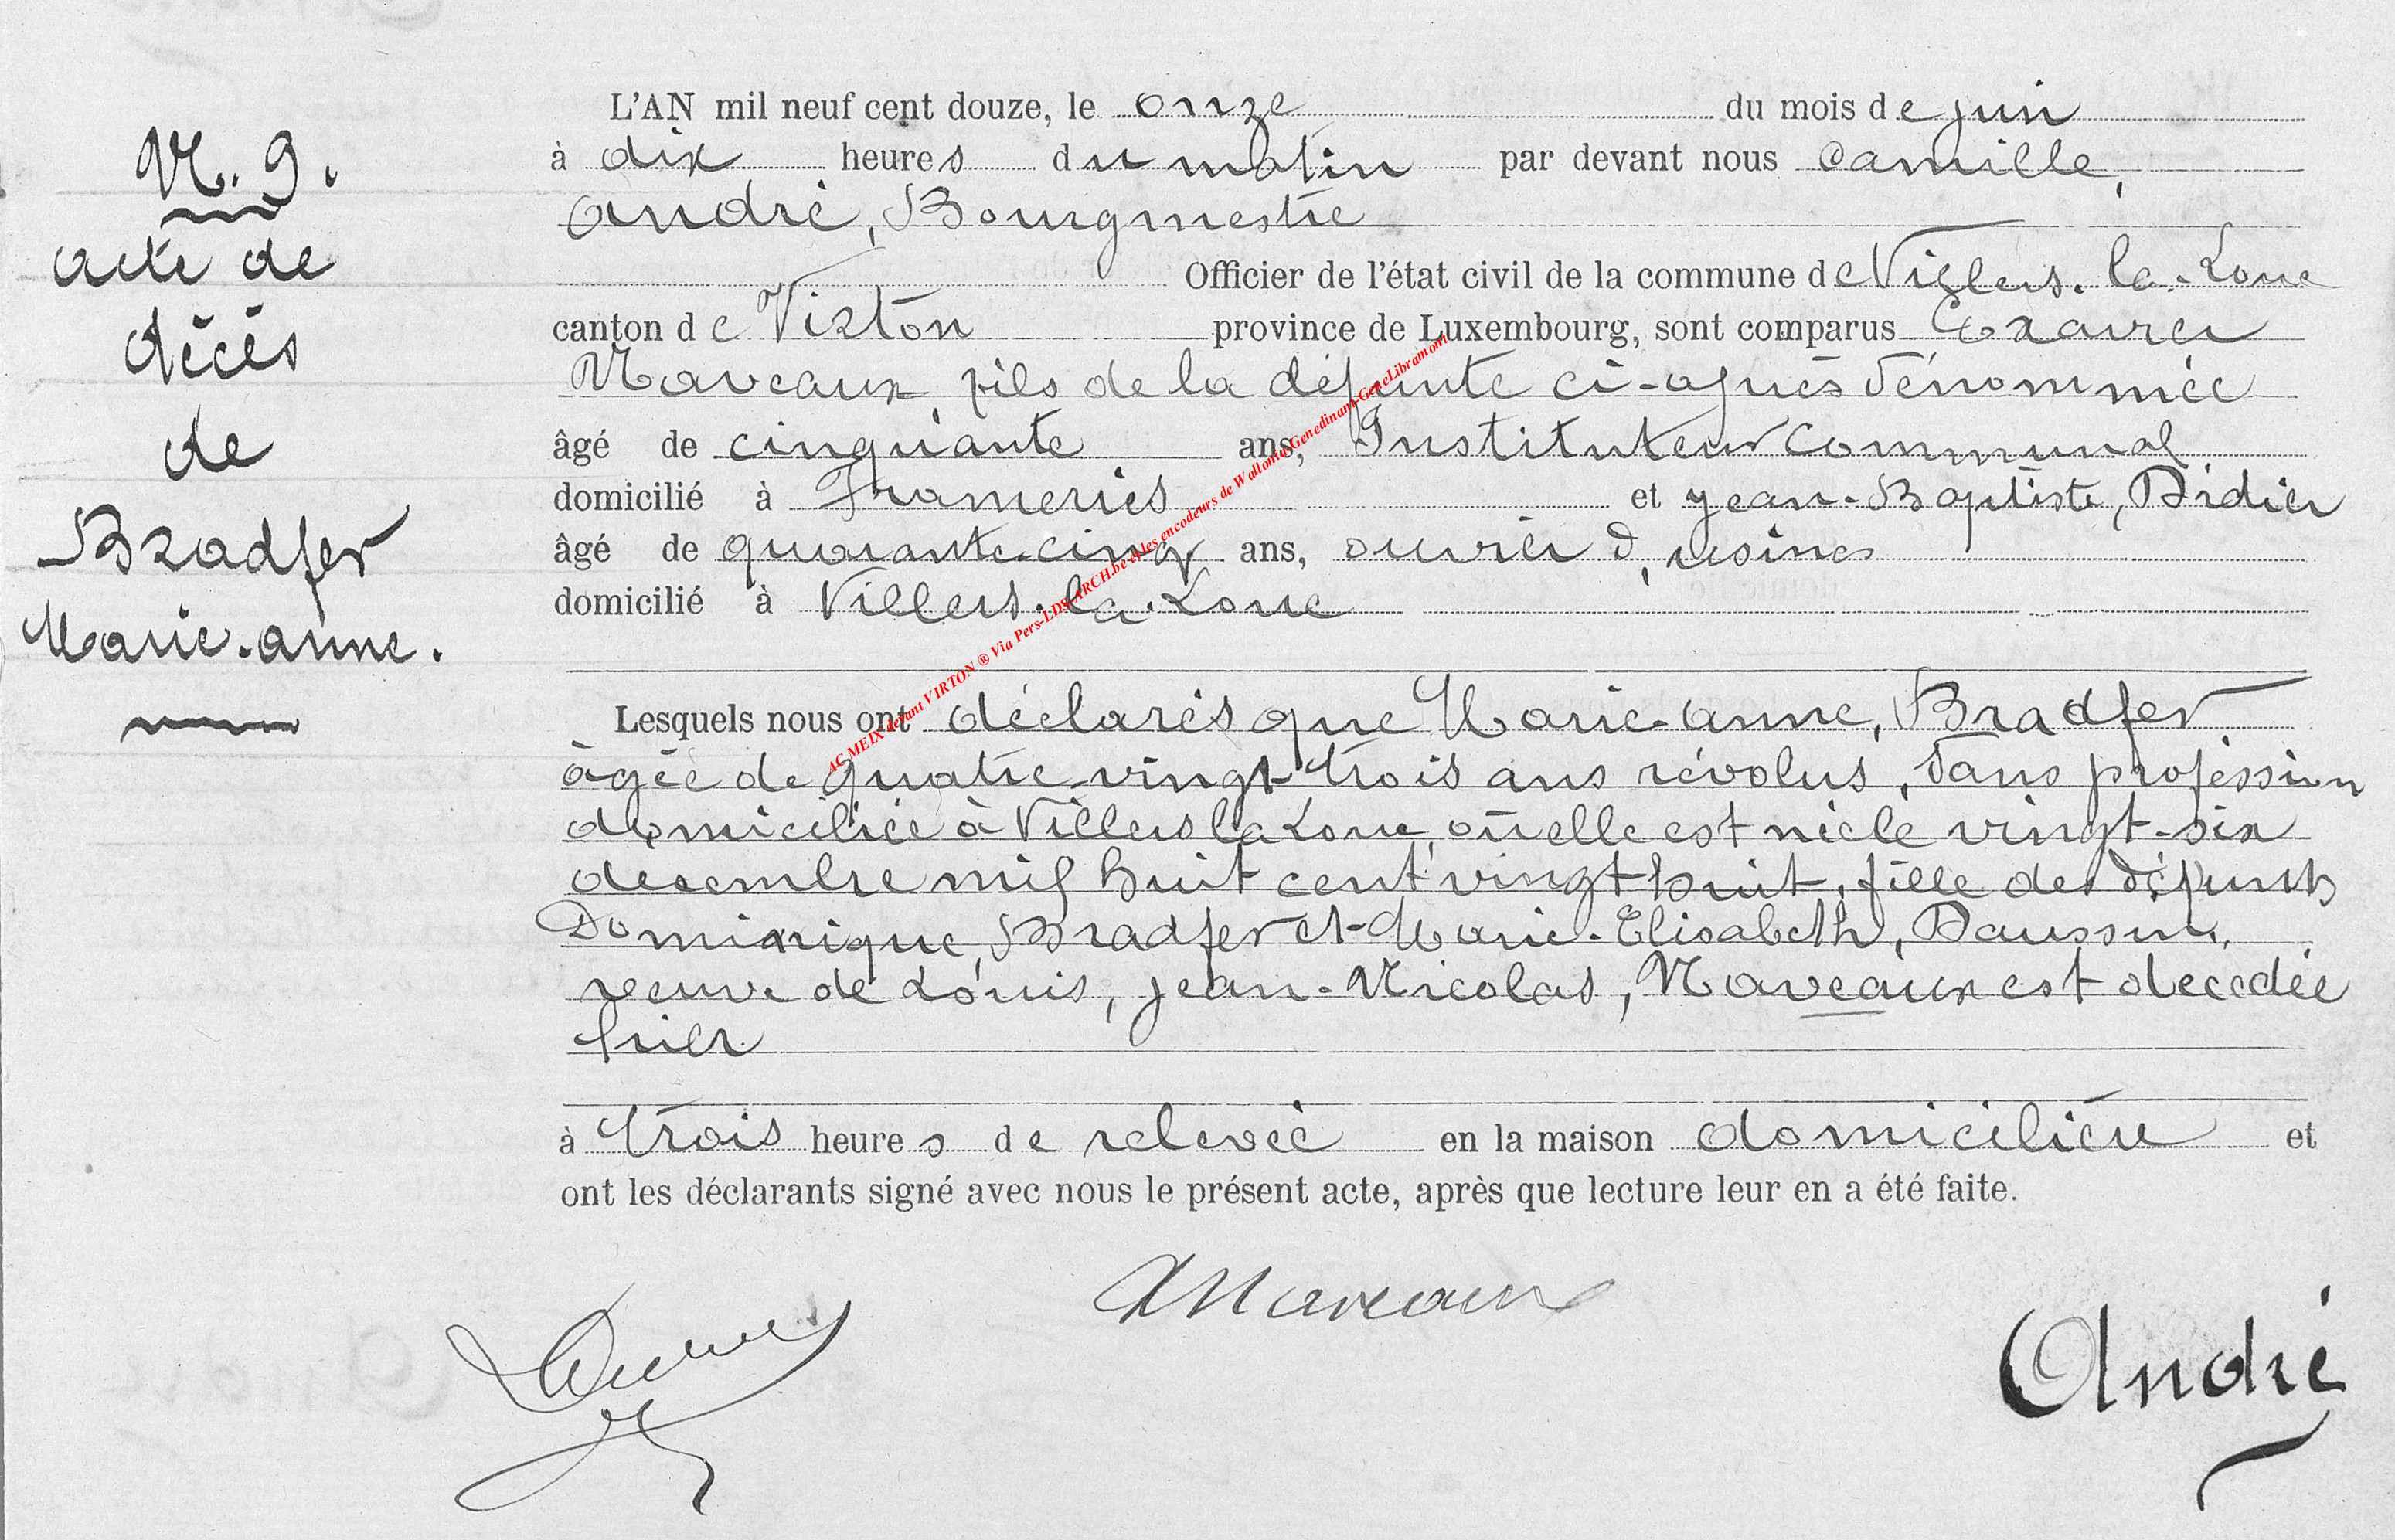 N. 9.
acte de
décès
de
Bradfer
Marie-anne.
L'AN mil neuf cent douze, le onze du mois de juin
à dix heures du matin par devant nous Camille,
André, Bourgmestre
Officier de l'état civil de la commune de Villers-la-Loue
canton de Virton province de Luxembourg, sont comparus
Naveaux, fils de la défunte ci-après dénommée
âgé de cinquante ans, Instituteur communal
domicilié à Frameries et jean-Baptiste, Didier
âgé de quarante-cinq ans, ouvrier d'usines
domicilié à Villers-la-Loue
Lesquels nous ont déclarés que Marie-anne, Bradfer
âgée de quatre-vingt-trois ans révolus, sans profession
domiciliée à Villers la Loue, où elle est née le vingt-six
decembre mil huit cent vingt huit, fille de défunts
Dominique, Bradfer et Marie-Elisabeth,
veuve de Louis, jean-Nicolas, Naveaux est decedée
hier
à trois heures de relevée en la maison domicilière et
ont les déclarants signé avec nous le présent acte, après que lecture leur en a été faite.
Naveaux
André
AC MEIX devant VIRTON ® Via Pers-LDS-ARCH.be et les encodeurs de Wallonia-Genedinant-GeneLibramont